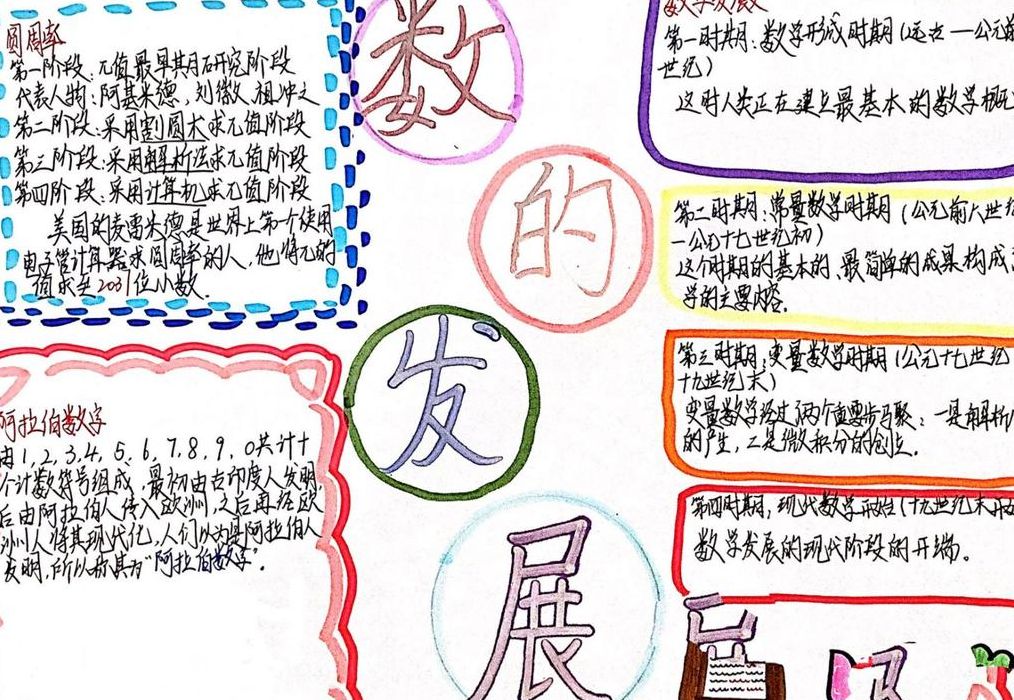 圆周率
第一阶段:兀值最早其月研究阶段
代表人物:阿基米德,刘徽、祖冲之
第二阶段:采用割圆术求兀值阶段
第三阶段:采用解析法求兀值阶段
第四阶段:采用计算机求兀值阶段
美国的麦雷米德是世界上第一个使用
电子管计算器求圆周率的人,他将兀的
值求至2031位小数.
阿拉伯数字
由1,2,3,4,5,6,7,8,9,0共计十
个计数符号组成,最初由古印度人发明,
后由阿拉伯人传入欧洲,之后再经欧
洲人将其现代化,人们以为是阿拉伯人
发明,所以称其为"阿拉伯数字".
数
的
发
展
数学发展
第一时期:数学形成时期(远古一公元前
世纪)
这时人类正在建立最基本的数学概
第二时期:常量数学时期(公元前六世纪
一公元十七世纪初)
这个时期的基本的、最简单的成果构成
学的主要内容.
第三时期:变量数学时期(公元十七世纪
十九世纪末)
变量数学经过两个重要步骤:一是解析
的产生,二是微积分的创立.
第四时期,现代数学(十九世纪末
数学发展的现代阶段的开端。